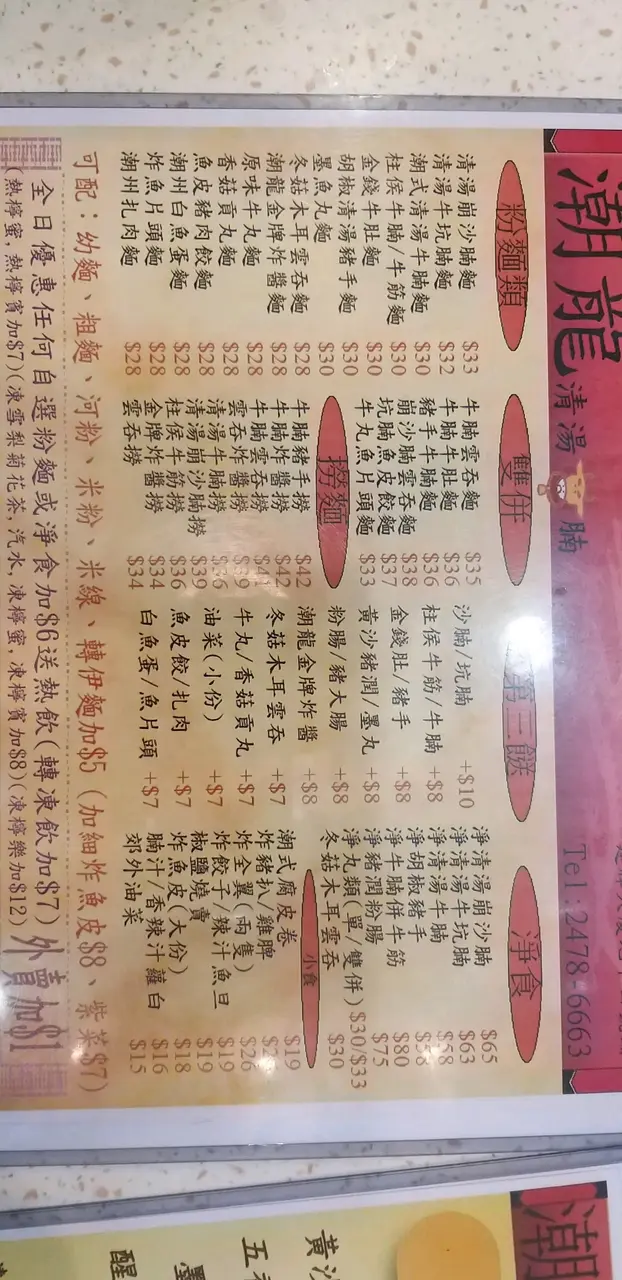 潮龍清湯腩
Tel:2478-6663
粉麵類
清湯崩沙腩麵 $33
清湯牛坑腩麵 $32
潮式清湯牛腩麵 $30
柱侯牛腩/牛筋麵 $30
金錢牛肚麵 $30
胡椒清湯豬手麵 $30
墨魚丸麵 $30
冬菇木耳雲吞麵 $28
潮龍金牌炸醬麵 $28
原味牛丸麵 $28
香菇貢丸麵 $28
魚皮豬肉餃麵 $28
潮州白魚蛋麵 $28
炸魚片頭麵 $28
潮州扎肉麵 $28
雙併
牛腩雲吞麵 $35
牛腩牛肚麵 $36
豬手牛腩麵 $36
崩沙腩雲吞麵 $38
坑腩魚皮餃麵 $37
牛丸魚片頭麵 $33
撈麵
牛腩豬手撈 $42
牛腩炸醬撈 $42
牛腩雲吞撈
雲吞炸醬撈 $39
清湯牛腩撈
清湯崩沙腩撈 $39
柱侯牛筋撈 $36
金牌炸醬撈 $34
雲吞撈 $34
第三餸
沙腩/坑腩 +$10
柱侯牛筋/牛腩 +$8
金錢肚/豬手 +$8
黃沙豬潤/墨丸 +$8
粉腸/豬大腸 +$8
潮龍金牌炸醬 +$8
冬菇木耳雲吞 +$7
牛丸/香菇貢丸 +$7
油菜(小份) +$7
魚皮餃/扎肉 +$7
白魚蛋/魚片頭 +$7
淨食
淨清湯崩沙腩 $65
淨清湯牛坑腩 $63
淨清湯牛腩 $58
淨胡椒豬手
淨牛腩併牛筋 $80
淨豬潤粉腸 $75
淨丸類(單/雙併) $30/$33
冬菇木耳雲吞 $30
小食
潮式腐皮卷 $19
炸豬扒/雞脾
炸全翼(兩隻) $26
炸餃子/辣汁魚旦 $19
椒鹽燒賣 $19
炸魚皮(大份) $18
腩汁/香辣汁蘿白 $16
郊外油菜 $15
可配:幼麵、粗麵、河粉、米粉、米線、轉伊麵加$5(加細炸魚皮$8、紫菜$7)
全日優惠任何自選粉麵或淨食加$6送熱飲(轉凍飲加$7)外賣加$1
(熱檸蜜,熱檸賓加$7)(凍雪梨菊花茶,汽水,凍檸蜜,凍檸賓加$8)(凍檸樂加$12)
潮
黃沙
五
墨
醒